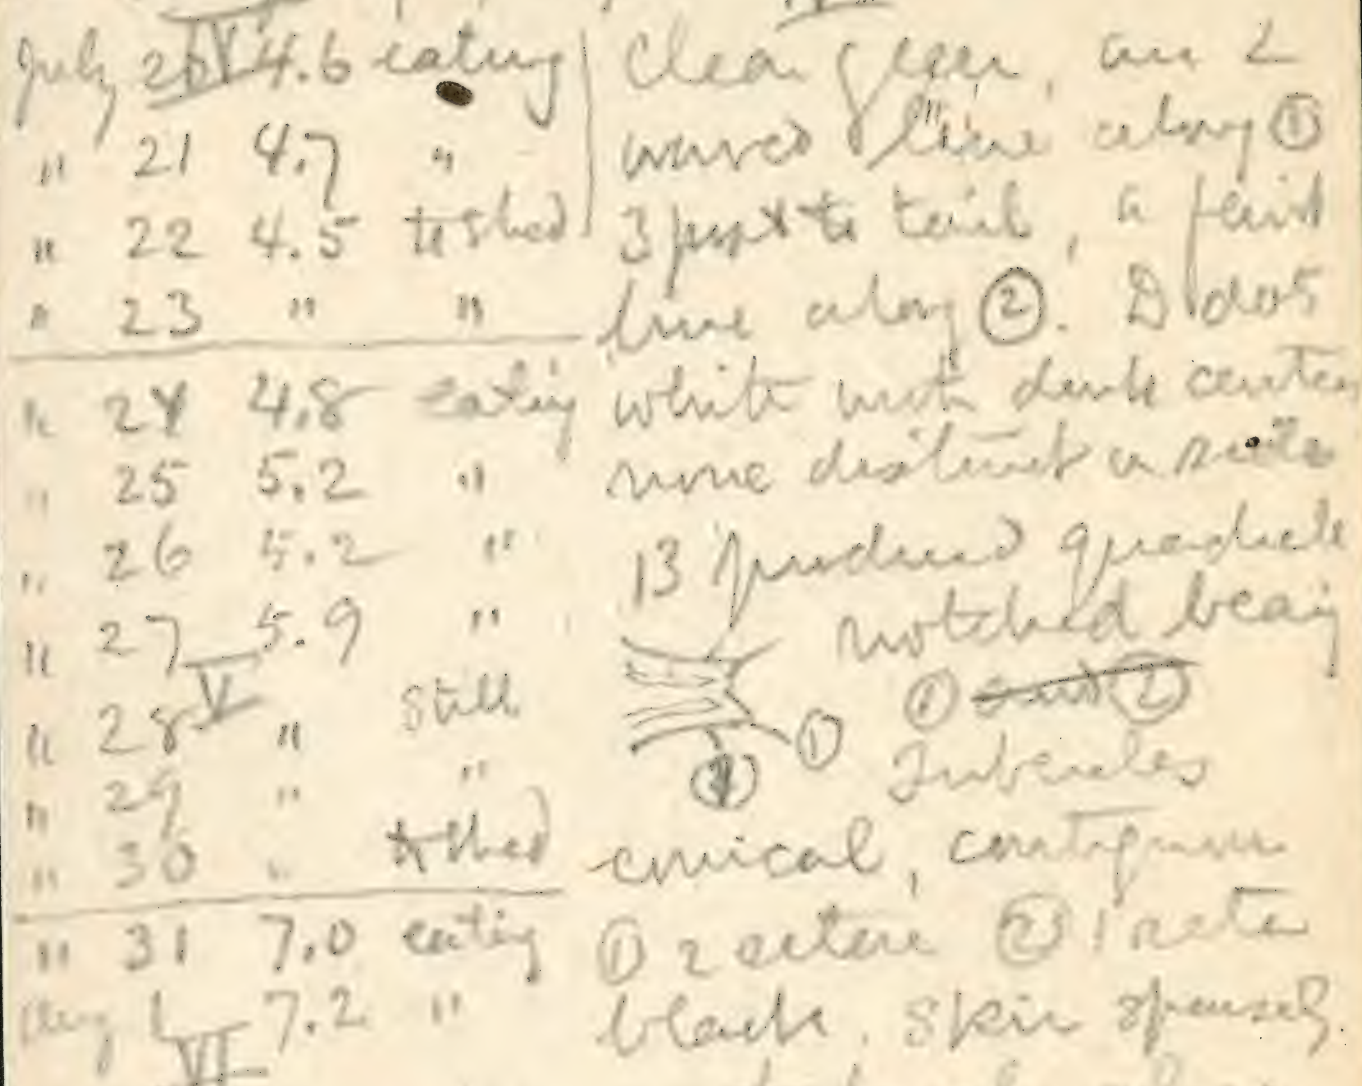 IV
July 20 4.6 eating
" 21 4.7 "
" 22 4.5 to shed
" 23 " "
" 24 4.8 eating
" 25 5.2 "
" 26 5.2 "
" 27 5.9 "
V
" 28 " Still
" 29 " "
" 30 " to shed
" 31 7.0 eating
Aug 1 7.2 "
VI
Clear green, an L
waved line along ①
3 post to tail, a faint
line along ②. D dots
white with dark center
none distinct
13 produced
notched beaig
① and ②
①
②
Tubercles
conical, contiguous
① 2 setae ② 1 seta
black, skin sparsely